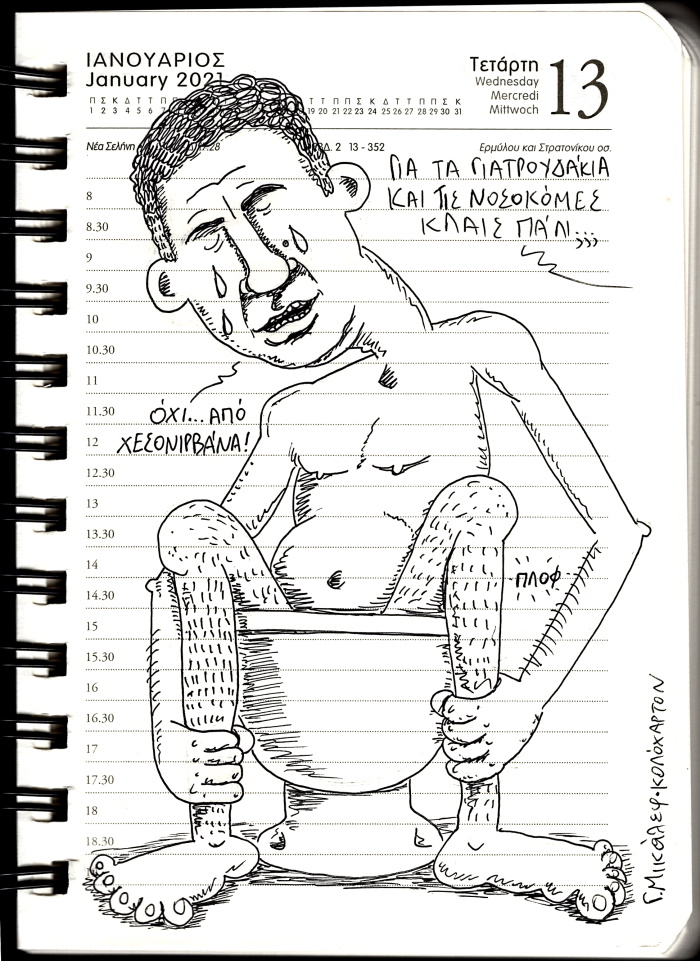 ΙΑΝΟΥΑΡΙΟΣ
January 2021
Τετάρτη
Wednesday
Mercredi
Mittwoch
13
Π Σ Κ Δ Τ Τ Τ Π Π Σ Κ Δ Τ Τ Π Π Σ Κ
1 2 3 4 5 6 19 20 21 22 23 24 25 26 27 28 29 30 31
Νέα Σελήνη 28 2 13 - 352
Ερμύλου και Στρατονίκου οσ.
ΓΙΑ ΤΑ ΓΙΑΤΡΟΥΔΆΚΙΑ
ΚΑΙ ΤΙΣ ΝΟΣΟΚΌΜΕΣ
ΚΛΑΙΣ ΠΆΛΙ...;;;
8
8.30
9
9.30
10
10.30
11
11.30
ΌΧΙ... ΑΠΌ
12
ΧΕΣΟΝΙΡΒΆΝΑ!
12.30
13
13.30
14
ΠΛΟΦ
14.30
15
15.30
16
16.30
17
17.30
18
18.30
Γ. ΜΙΚΆΛΕΦ・ΚΟΛΌΧΑΡΤΟΝ